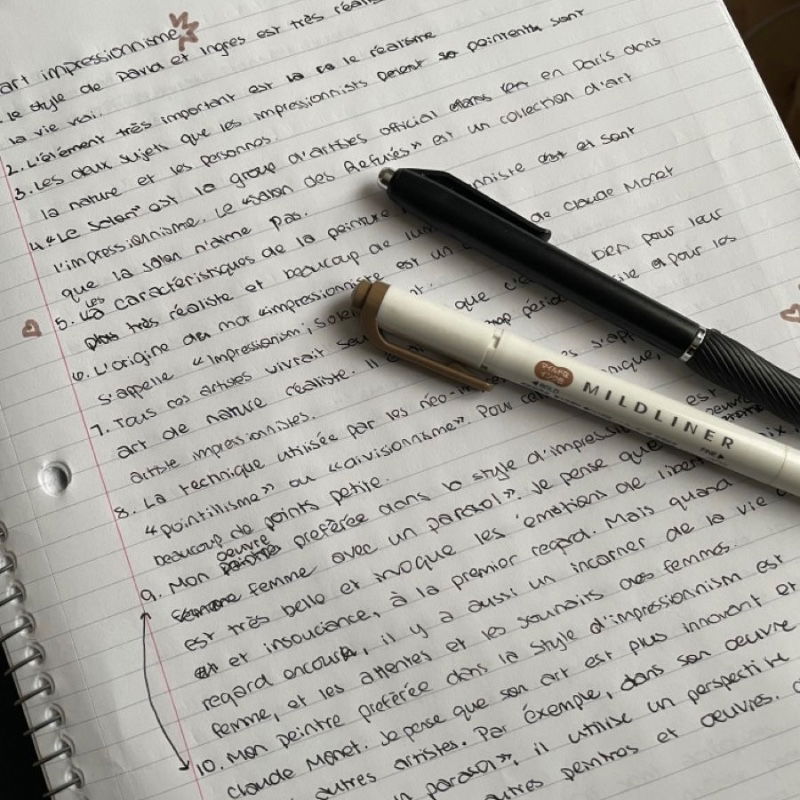 art impressionnisme
le style de David et Ingres est très réalis
la vie vrai.
2. L'élément très important est le réalisme
3. Les deux sujets que les impressionnists peintent sont
la nature et les personnes.
4. «Le Salon» est le group d'artistes official en Paris dans
l'impressionnisme. Le «Salon des Refusés» est un collection d'art
que la salon n'aime pas.
5. Les caractéristiques de la peinture nniste et sont
très réaliste et beaucoup de lum
6. L'origine du mot «impressionniste est un de Claude Monet
s'appelle «Impressionism; Solei
7. Tous ces artistes vivrait seu que c'é bien pour leur
art de nature réaliste. Il é op péri ile et pour les
artiste impressionnistes.
8. La technique utilisée par les néo-im s s'app
«pointillisme» ou «divisionnisme». Pour ce nique,
beaucoup de points petite.
9. Mon oeuvre preférée dans la style d'impressi est
femme avec un parasol». Je pense que oeuvre
est très belle et invoque les émotions de liber
et insouciance, à la premier regard. Mais quand
regard encours, il y a aussi un incarner de la vie
femme, et les attentes et les souhaits des femmes.
10. Mon peintre preférée dans la style d'impressionnism est
Claude Monet. Je pense que son art est plus innovant et
autres artistes. Par éxemple, dans son oeuvre
n parasol», il utilise un perspectiv
utres peintres et oeuvres.
MILDLINER
FINE